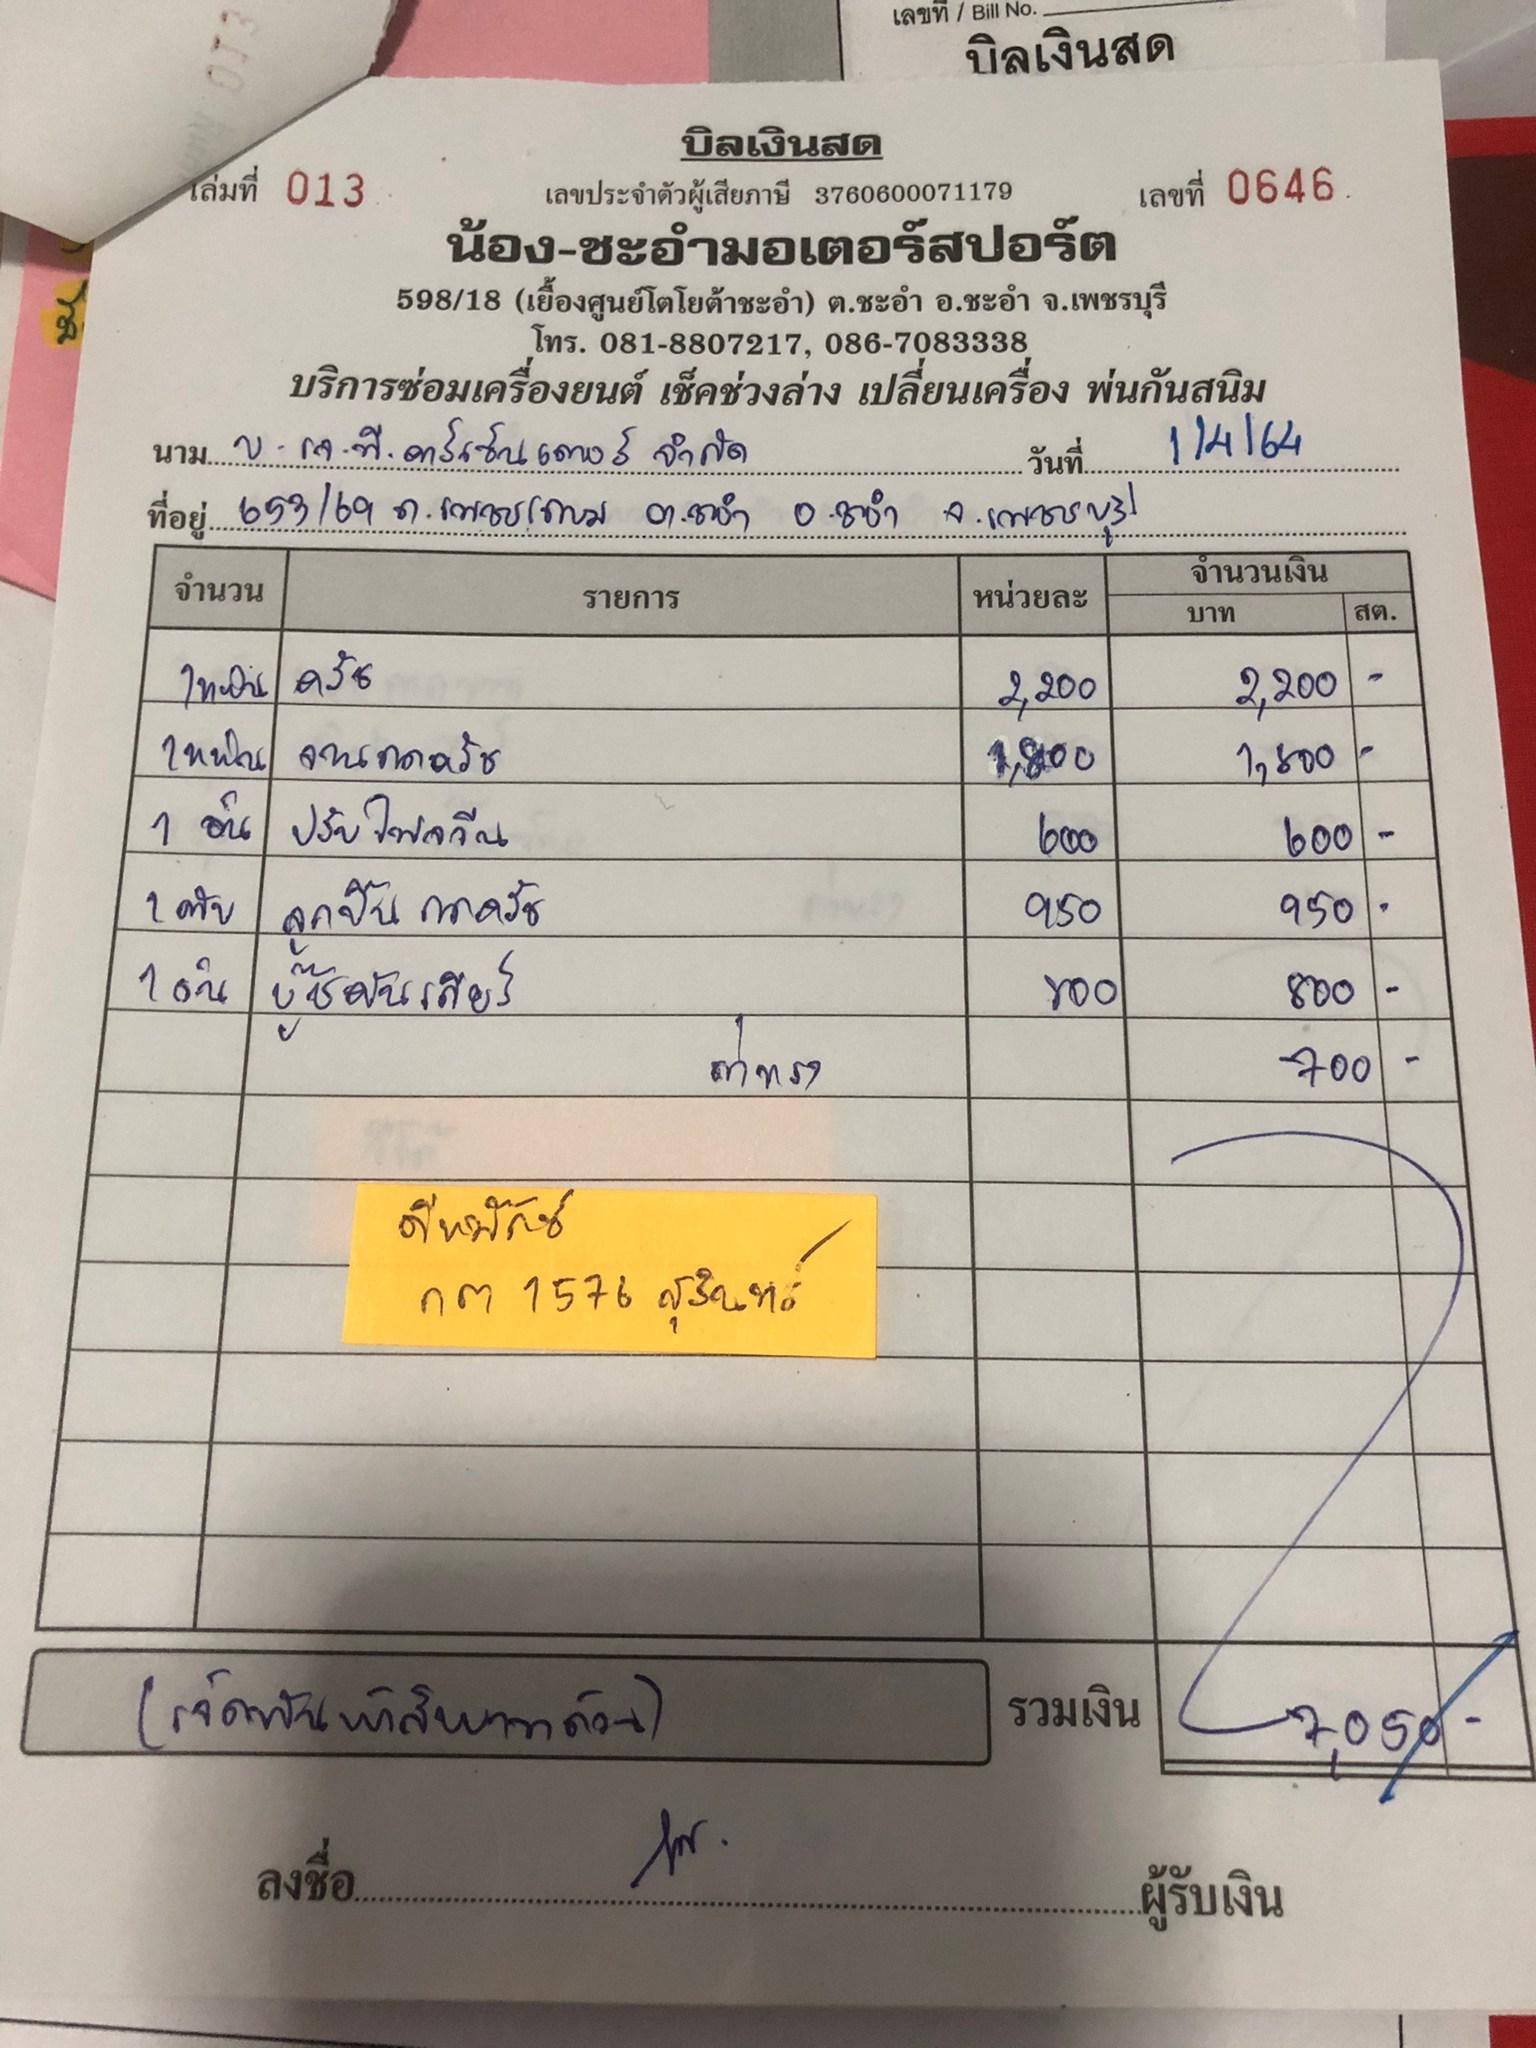 เลขที่ / Bill No.
บิลเงินสด
013
บิลเงินสด
เล่มที่ 013 เลขประจำตัวผู้เสียภาษี 3760600071179 เลขที่ 0646
น้อง-ชะอำมอเตอร์สปอร์ต
598/18 (เยื้องศูนย์โตโยต้าชะอำ) ต.ชะอำ อ.ชะอำ จ.เพชรบุรี
โทร. 081-8807217, 086-7083338
บริการซ่อมเครื่องยนต์ เช็คช่วงล่าง เปลี่ยนเครื่อง พ่นกันสนิม
นาม บ. เจ.พี. คาร์เซ็นเตอร์ จำกัด วันที่ 1/4/64
ที่อยู่ 653/69 ถ.เพชรเกษม ต.ชะอำ อ.ชะอำ จ.เพชรบุรี
จำนวน รายการ หน่วยละ จำนวนเงิน
บาท สต.
1 แผ่น ครัช 2,200 2,200 -
1 แผ่น จานกดครัช 1,800 1,800 -
1 อัน ปรับไฟลวีล 600 600 -
1 ตลับ ลูกปืน กดครัช 950 950 -
1 อัน บู๊ชคันเกียร์ 800 800 -
ค่าแรง 700 -
ดีแมกซ์
กต 1576 สุรินทร์
(เจ็ดพันห้าสิบบาทถ้วน) รวมเงิน 7,050 -
ลงชื่อ ผู้รับเงิน